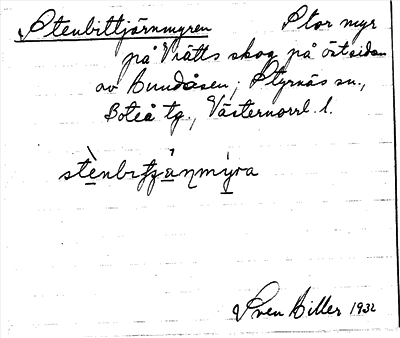 Stenbittjärnmyren Stor myr
på Viätts skog på östsidan
av Bundåsen, Styrnäs sn.,
Boteå tg., Västernorrl. l.
Sven Hiller 1932